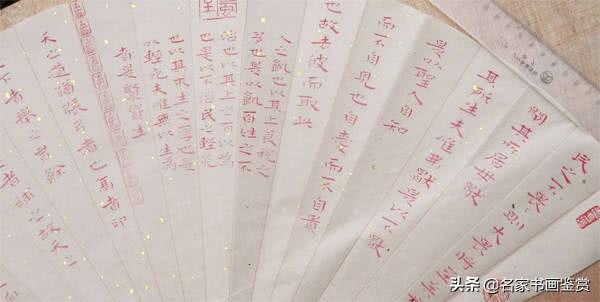 民之不畏 則大畏將至
其所居毋猒
其所生夫唯弗猒是以不猒
是以聖人自知
而不自見也自愛而不自貴
也故去彼而取此
人之飢也以其上食稅之
多也是以飢百姓之不
治也以其上之有以為
也是以不治民之輕死
也以其求生之厚也是
以輕死夫唯無以生為
者是賢貴生
天之道酉張弓者也高者印
下者舉之有餘
者補之故天之
头条 @名家书画鉴赏